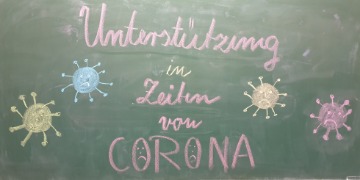 Unterstützung
in
Zeiten
von
CORONA